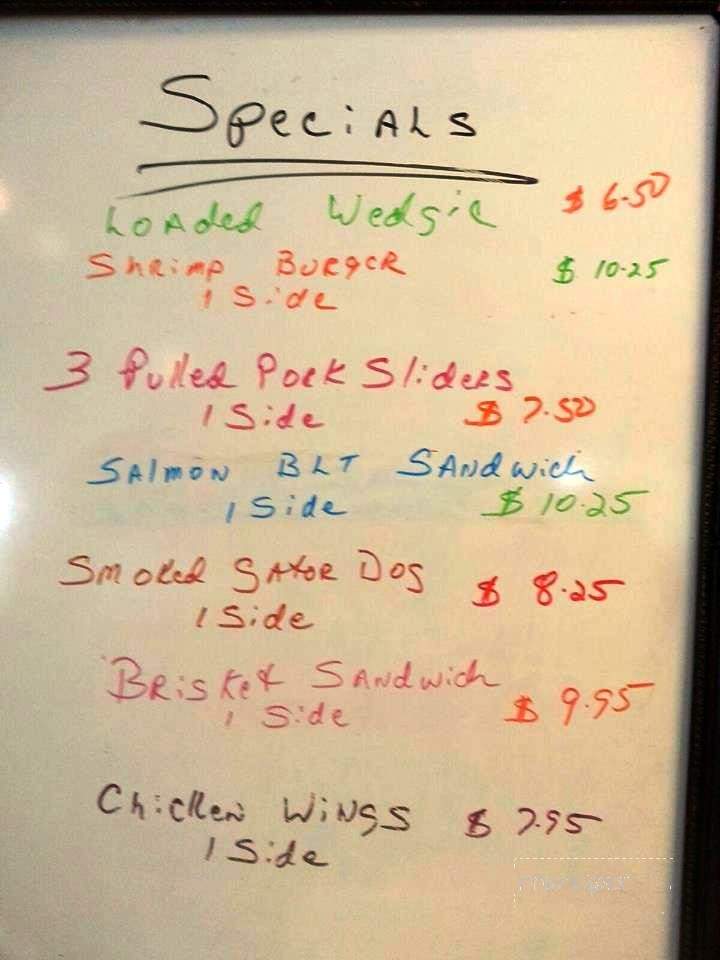 Specials
Loaded Wedgie $ 6.50
Shrimp Burger $ 10.25
1 Side
3 Pulled Pork Sliders
1 Side $ 7.50
Salmon BLT Sandwich
1 Side $ 10.25
Smoked Gator Dog $ 8.25
1 Side
Brisket Sandwich
1 Side $ 9.95
Chicken Wings $ 7.95
1 Side